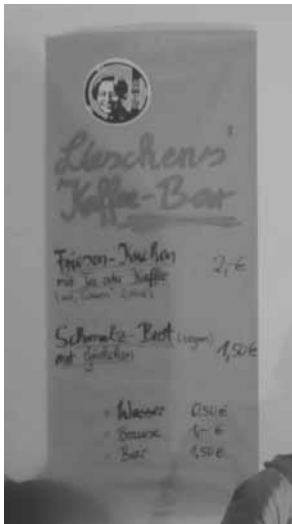 Lieschens'
Kaffee-Bar
Friesen-Kuchen 2,-€
mit Tee oder Kaffee
Schmalz-Brot (vegan) 1,50€
mit Gürkchen
- Wasser 0,50€
- Brause 1,-€
- Bier 1,50€